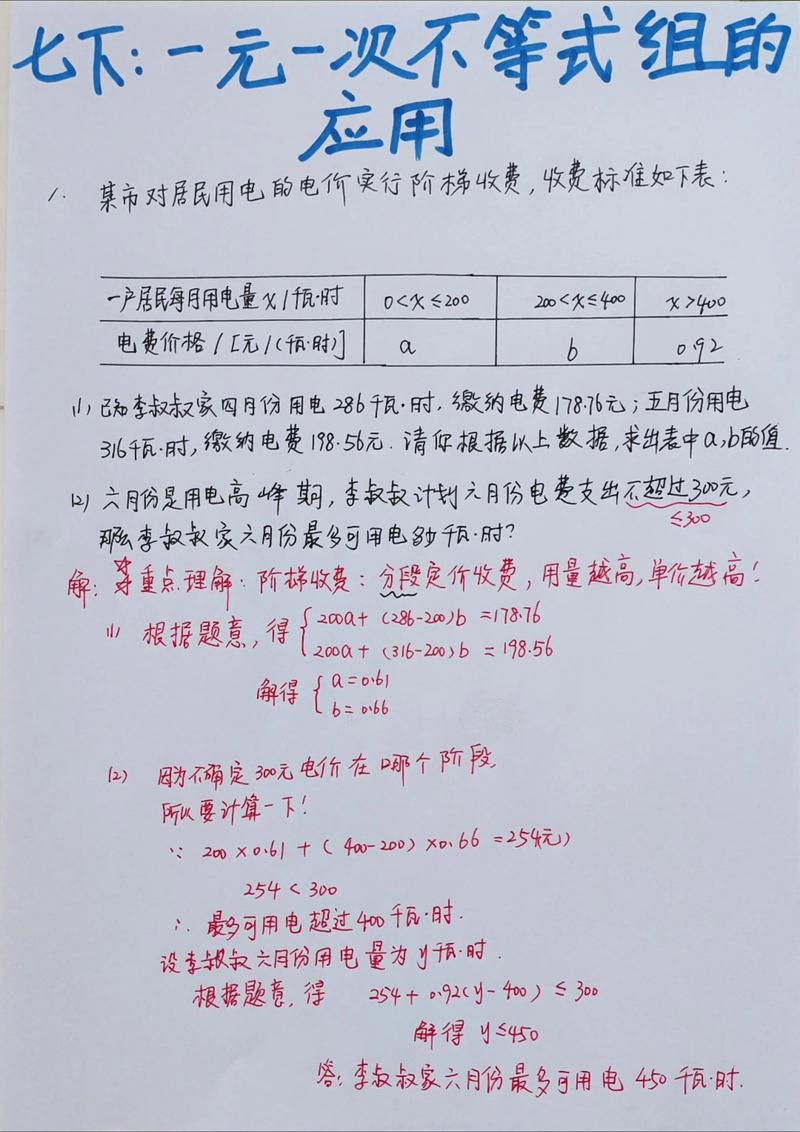 七下:一元一次不等式组的
应用
1. 某市对居民用电的电价实行阶梯收费,收费标准如下表:
一户居民每月用电量x/千瓦·时 0<x≤200 200<x≤400 x>400
电费价格/[元/(千瓦·时)] a b 0.92
(1) 已知李叔叔家四月份用电286千瓦·时,缴纳电费178.76元;五月份用电
316千瓦·时,缴纳电费198.56元.请你根据以上数据,求出表中a,b的值.
(2) 六月份是用电高峰期,李叔叔计划六月份电费支出不超过300元,
≤300
那么李叔叔家六月份最多可用电多少千瓦·时?
解: 重点理解:阶梯收费:分段定价收费,用量越高,单价越高!
(1) 根据题意,得 { 200a+(286-200)b=178.76
200a+(316-200)b=198.56
解得 { a=0.61
b=0.66
(2) 因为不确定300元电价在哪个阶段,
所以要计算一下!
∵ 200×0.61+(400-200)×0.66=254(元)
254<300
∴ 最多可用电超过400千瓦·时.
设李叔叔六月份用电量为y千瓦·时.
根据题意,得 254+0.92(y-400)≤300
解得 y≤450
答:李叔叔家六月份最多可用电450千瓦·时.